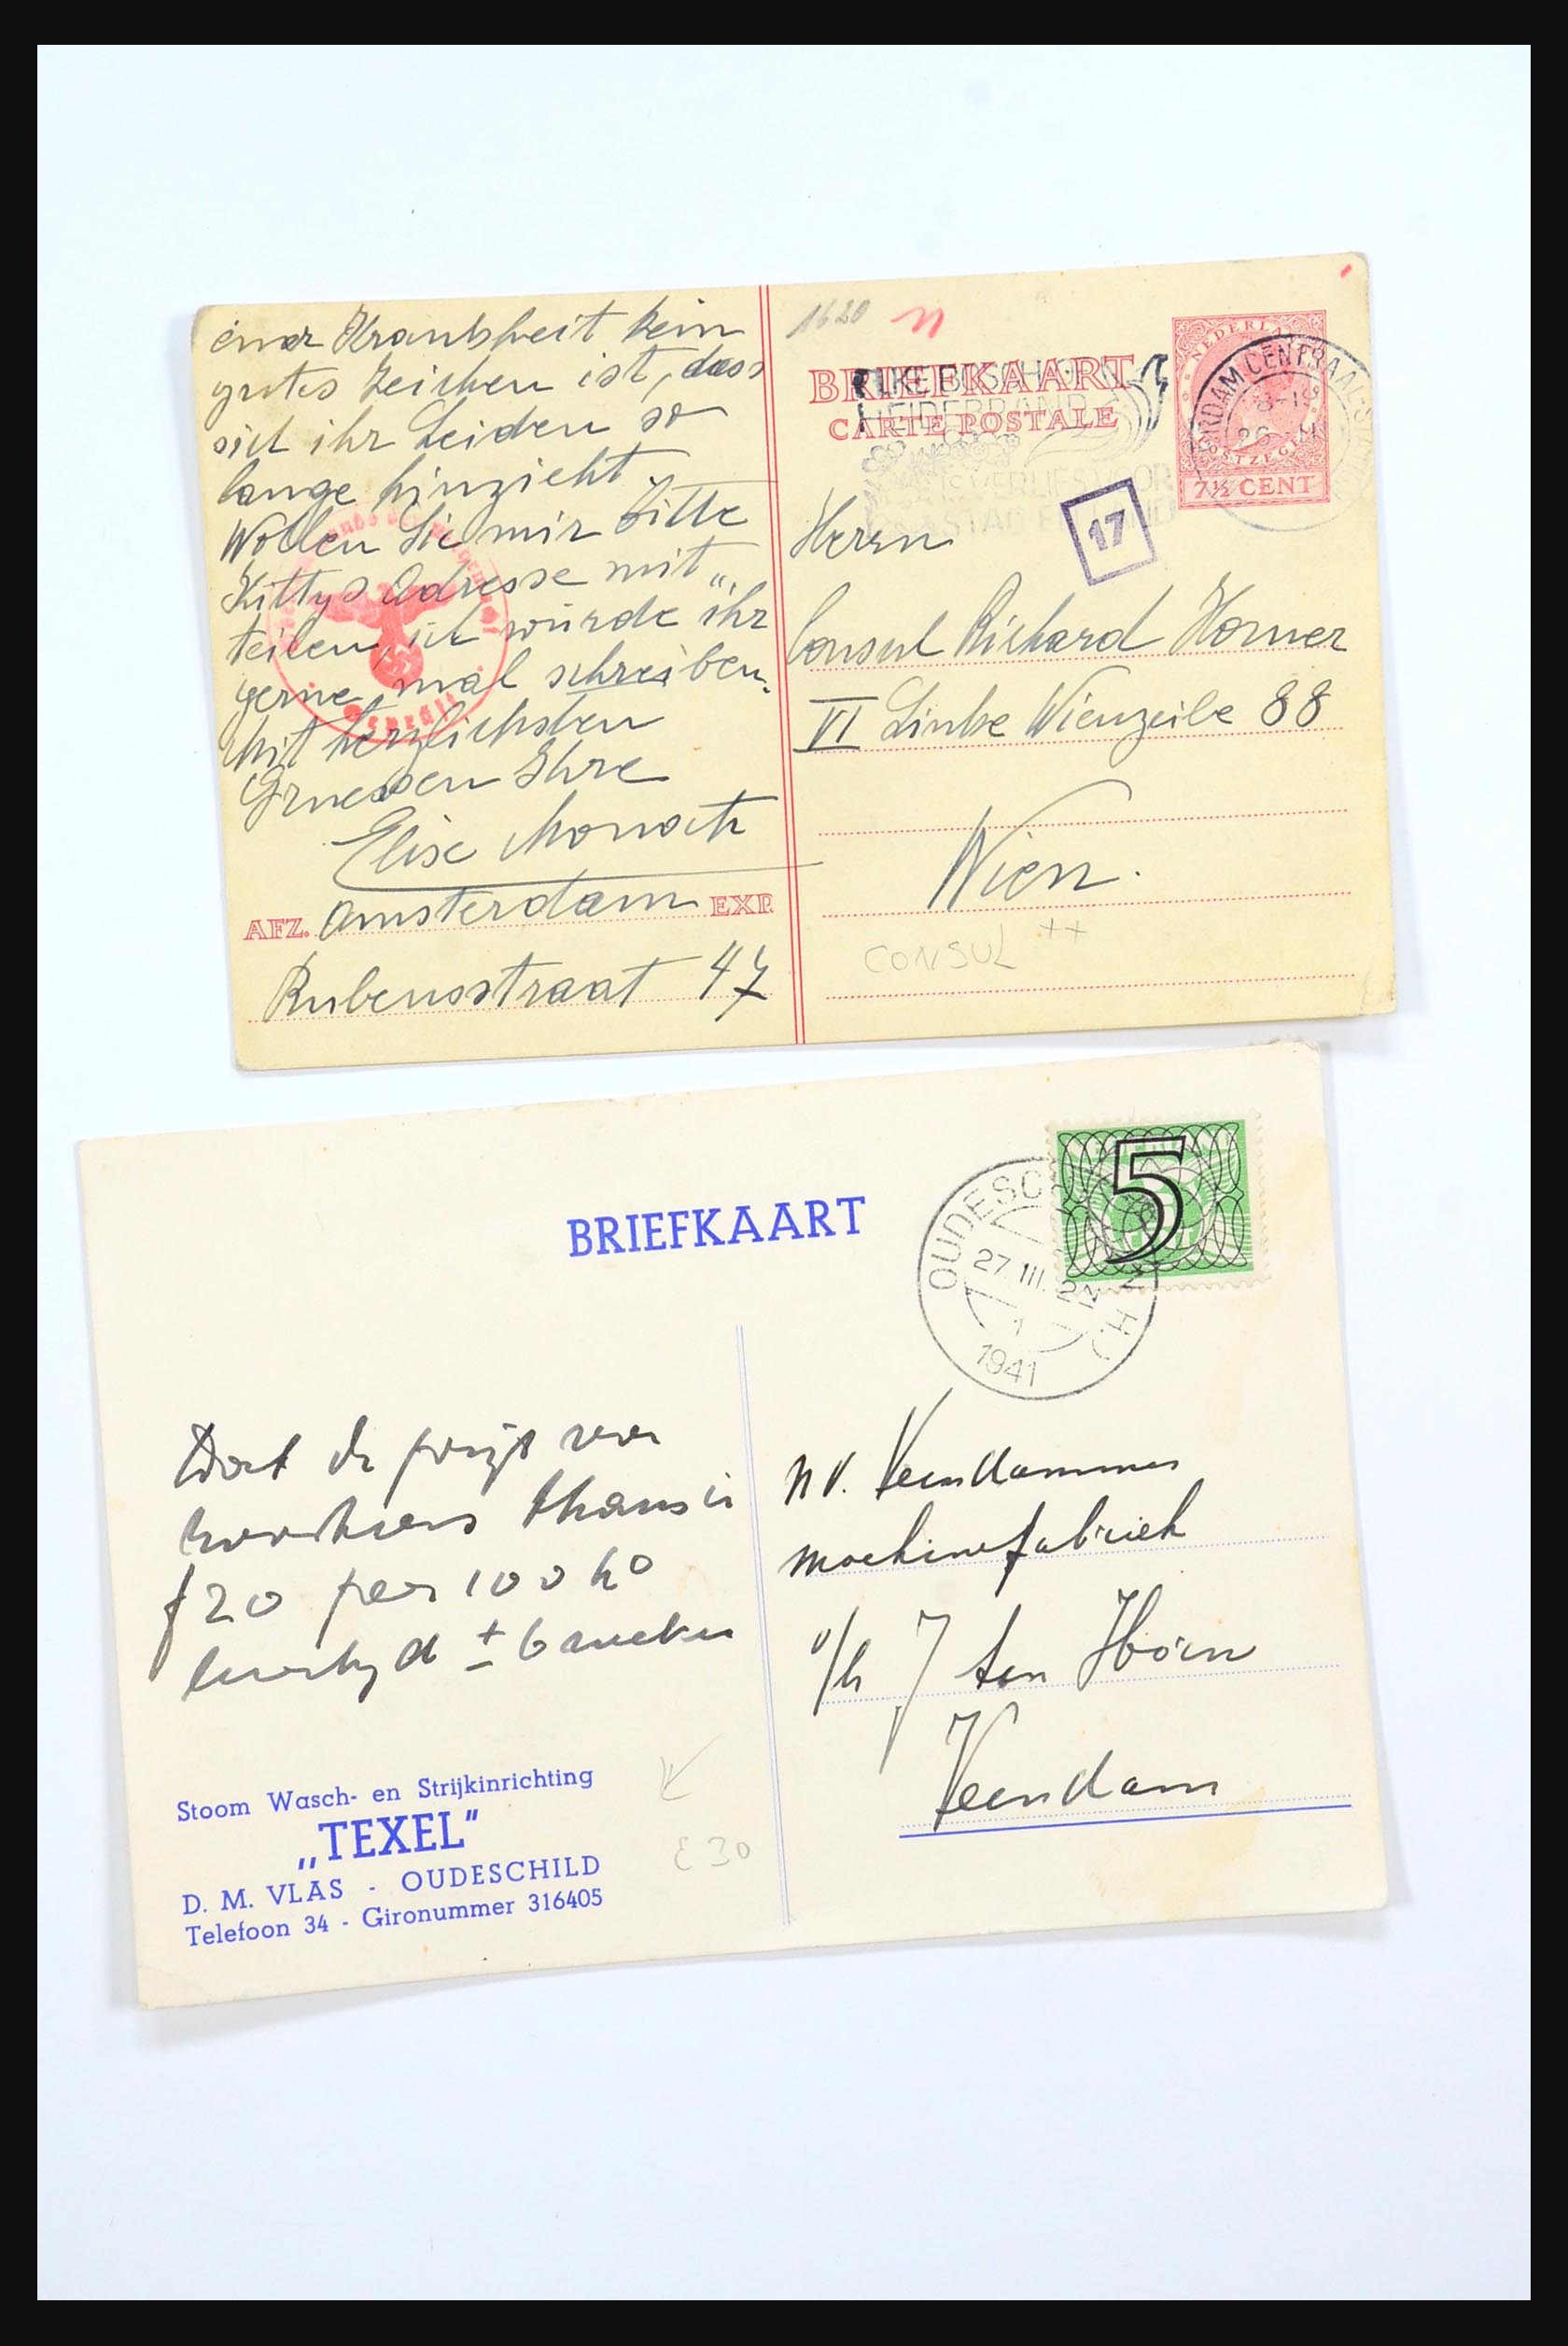 einer Krankheit kein
gutes Zeichen ist, dass
sich ihr Leiden so
lange hinzieht.
Wollen Sie mir bitte
Kittys Adresse mit„
teilen, ich würde ihr
gerne mal schreiben.
Mit herzlichsten
Gruessen Ihre
Elise Monasch
AFZ. Amsterdam EXP.
Rubensstraat 47
1620
BRIEFKAART
CARTE POSTALE
ELKE BOSCH- OF
HEIDEBRAND
IS VERLIES VOOR
STAD EN LAND
NEDERLAND
POSTZEGEL
7½ CENT
AMSTERDAM CENTRAAL-STATION
17
Herrn
Consul Richard Horner
VI Linke Wienzeile 88
Wien.
CONSUL ++
BRIEFKAART
5
OUDESCHILD (N.H.)
27.III.
1
1941
Wat de prijs van
thans is
f 20 per 100 ko
levertijd ± 6 weken
Stoom Wasch- en Strijkinrichting
„TEXEL"
D. M. VLAS - OUDESCHILD
Telefoon 34 - Gironummer 316405
£ 30
NV. Veendammer
machinefabriek
v/h J ten Horn
Veendam